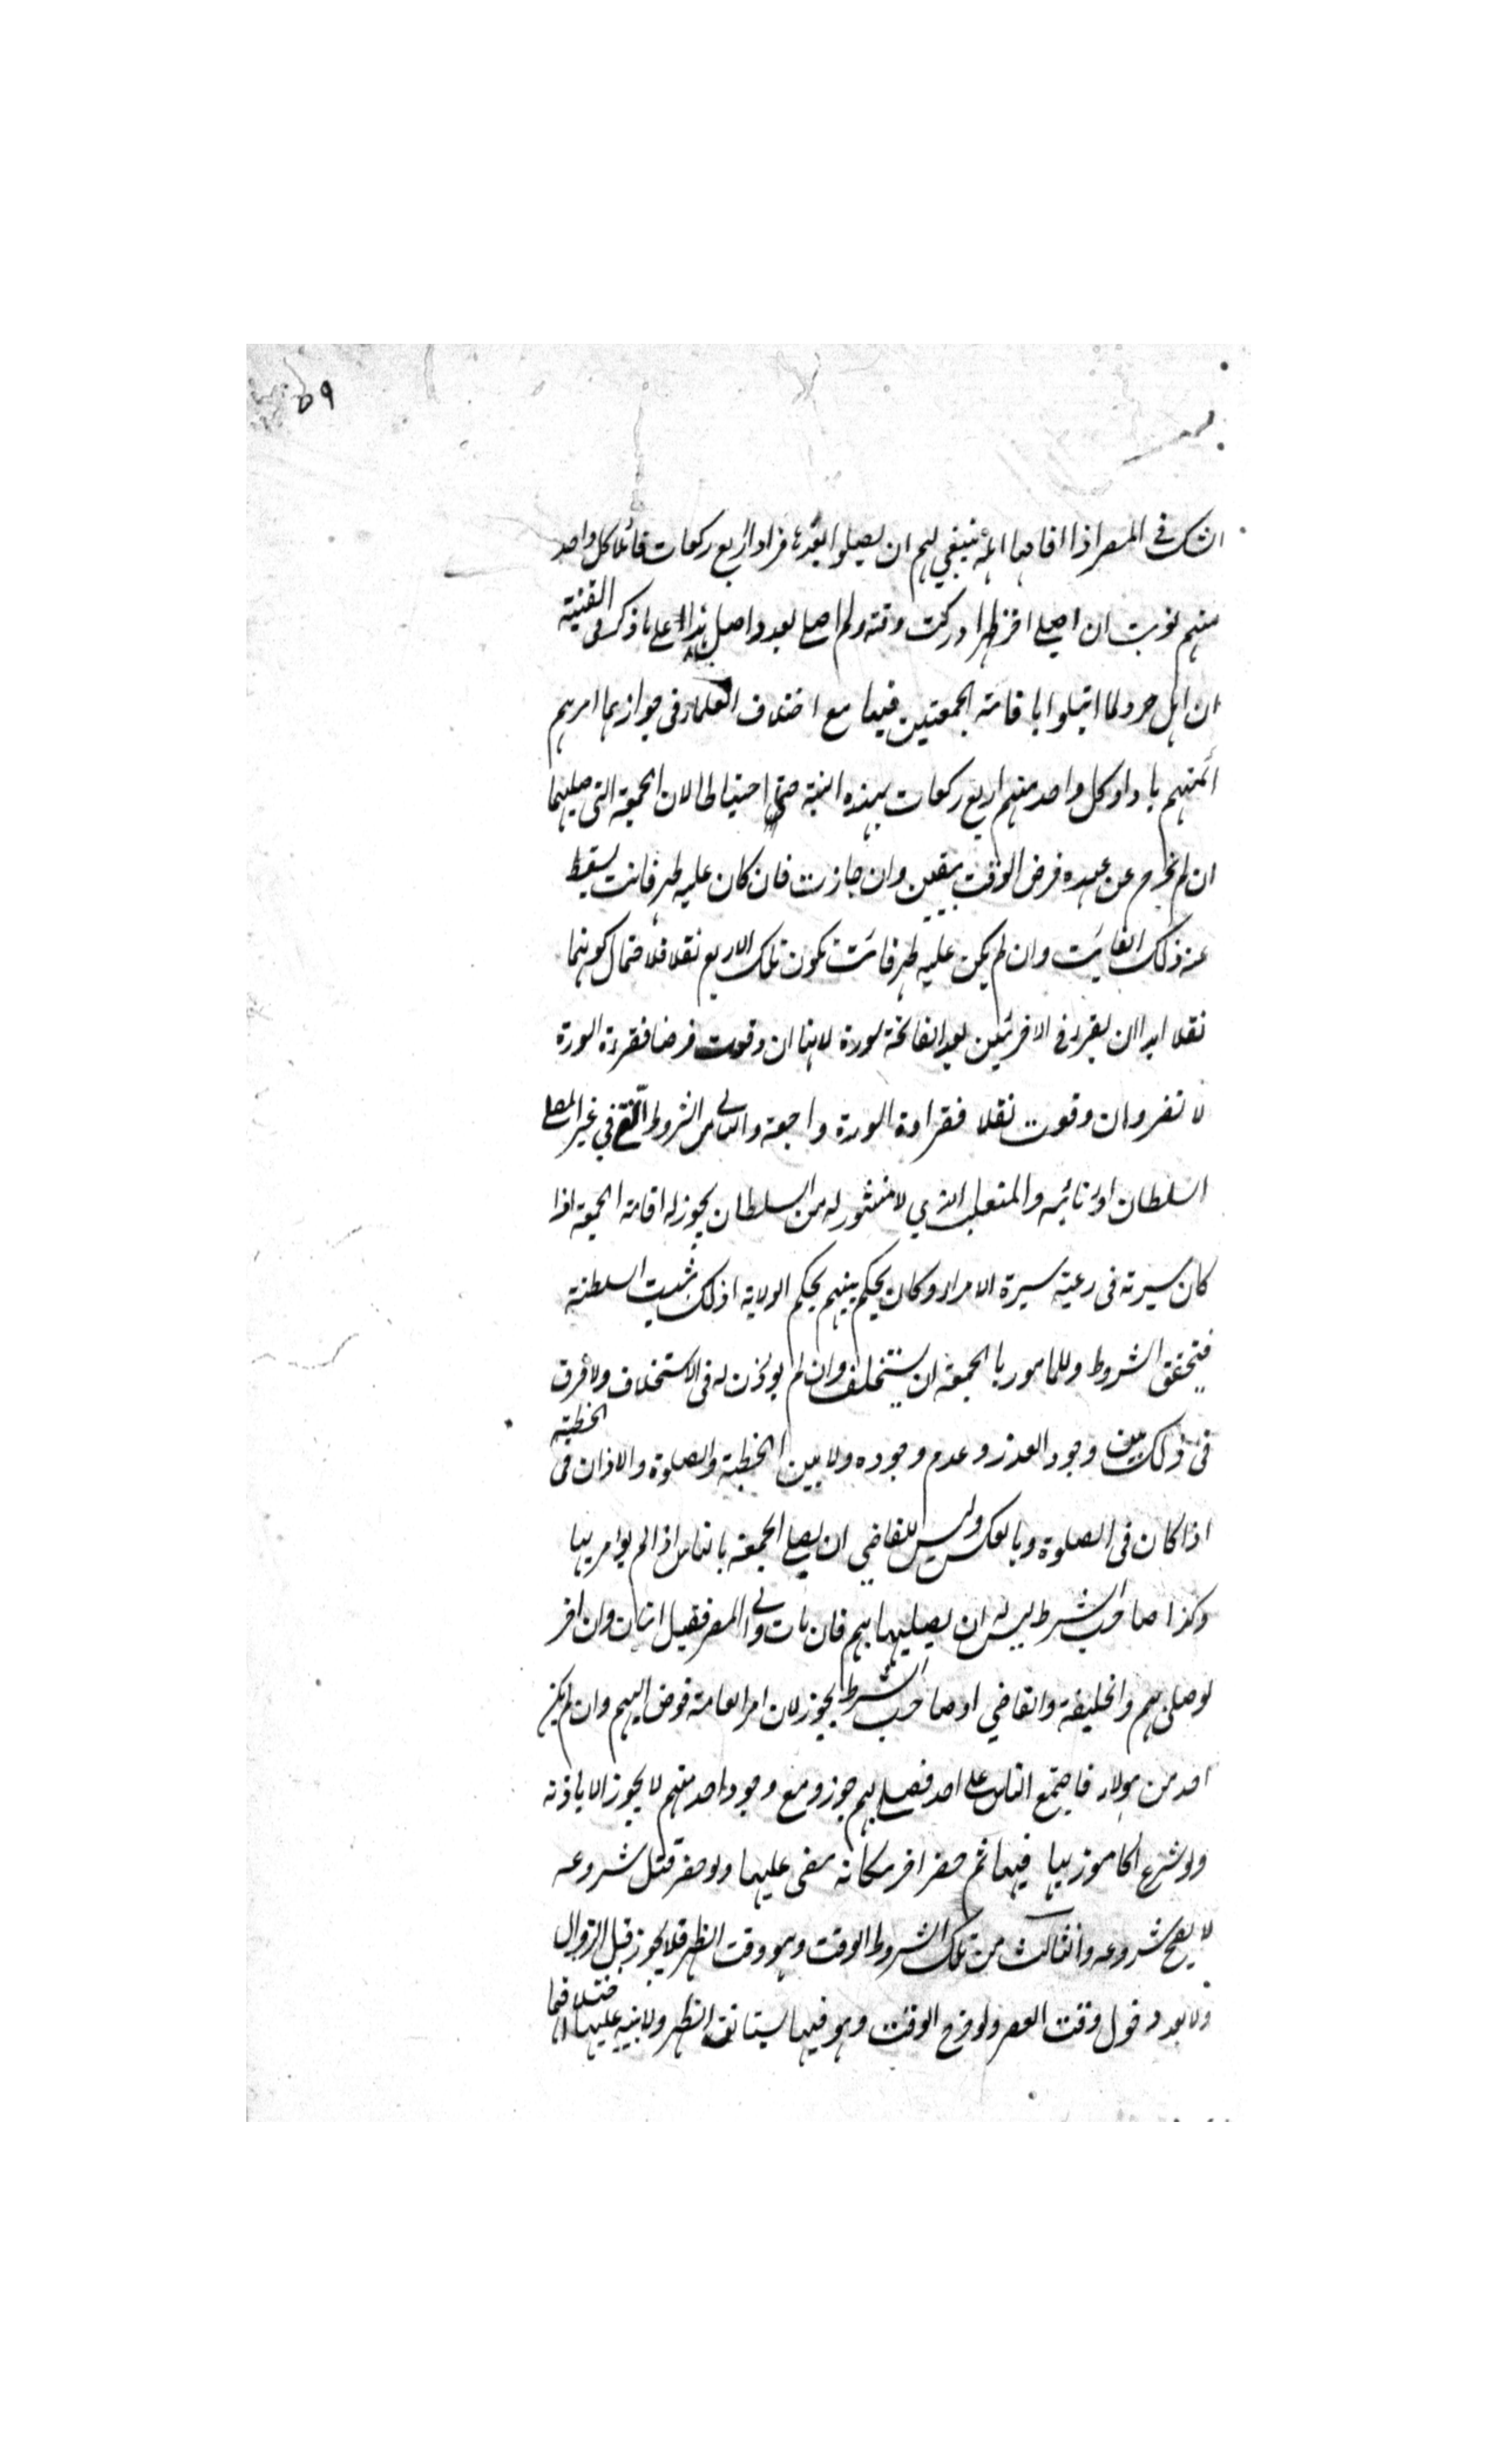 ٥٩
الشك في المصر اذا اقامها اهله ينبغي لهم ان يصلوا بعدها فرادا اربع ركعات قائلا كل واحد
منهم نويت ان اصلي اخر ظهر ادركت وقته ولم اصل بعد واصل هذا على ما ذكر فى القنية
ان اهل مرو لما ابتلوا باقامة الجمعتين فيها مع اختلاف العلماء فى جوازهما امرهم
ائمتهم باداء كل واحد منهم اربع ركعات بهذه النية حتى احتياطا لان الجمعة التى صليها
ان لم تخرج عن عهده فرض الوقت بيقين وان جازت فان كان عليه ظهر فائت يسقط
عنه ذلك الفايت وان لم يكن عليه ظهر فائت تكون تلك الاربع نفلا فلاحتمال كونها
نفلا ابدا ان يقرء فى الاخرئين بعد الفاتحة سورة لانها ان وقعت فرضا فقرءة السورة
لا تضر وان وقعت نفلا فقراءة السورة واجبة والثانى من الشروط التى فى غير المصلى
السلطان او نائبه والمتغلب الذي لا منشور له من السلطان يجوز له اقامة الجمعة اذا
كان سيرته فى رعيته سيرة الامراء وكان يحكم بينهم بحكم الولاية اذ بذلك يثبت السلطنة
فيتحقق الشروط وللمامور باالجمعة ان يستخلف وان لم يوذن له فى الاستخلاف ولا فرق
فى ذلك بين وجود العذر وعدم وجوده ولا بين الخطبة والصلوة والاذان فى الخطبة
اذا كان فى الصلوة وبالعكس وليس للقاضي ان يصلى الجمعة بالناس اذا لم يوامر بها
وكذا صاحب الشرط ليس له ان يصليها بهم فان مات والى المصر فقيل اتيان وان اخر
لو صلى بهم والخليفة والقاضي او صاحب الشرط يجوز لان امر العامة فوض اليهم وان لم يكن
احد من هولاء فاجتمع الناس على احد فصلى بهم جوز ومع وجود احد منهم لا يجوز الا باذنه
ولو شرع المامور بها فيها ثم حضر اخر مكانه مضى عليها ولو حضر قبل شروعه
لا يصح شروعه والثالث من تلك الشروط الوقت وهو وقت الظهر فلا يجوز قبل الزوال
ولا بعد دخول وقت العصر ولو خرج الوقت وهو فيها يستانف الظهر ولا يبنيه عليها